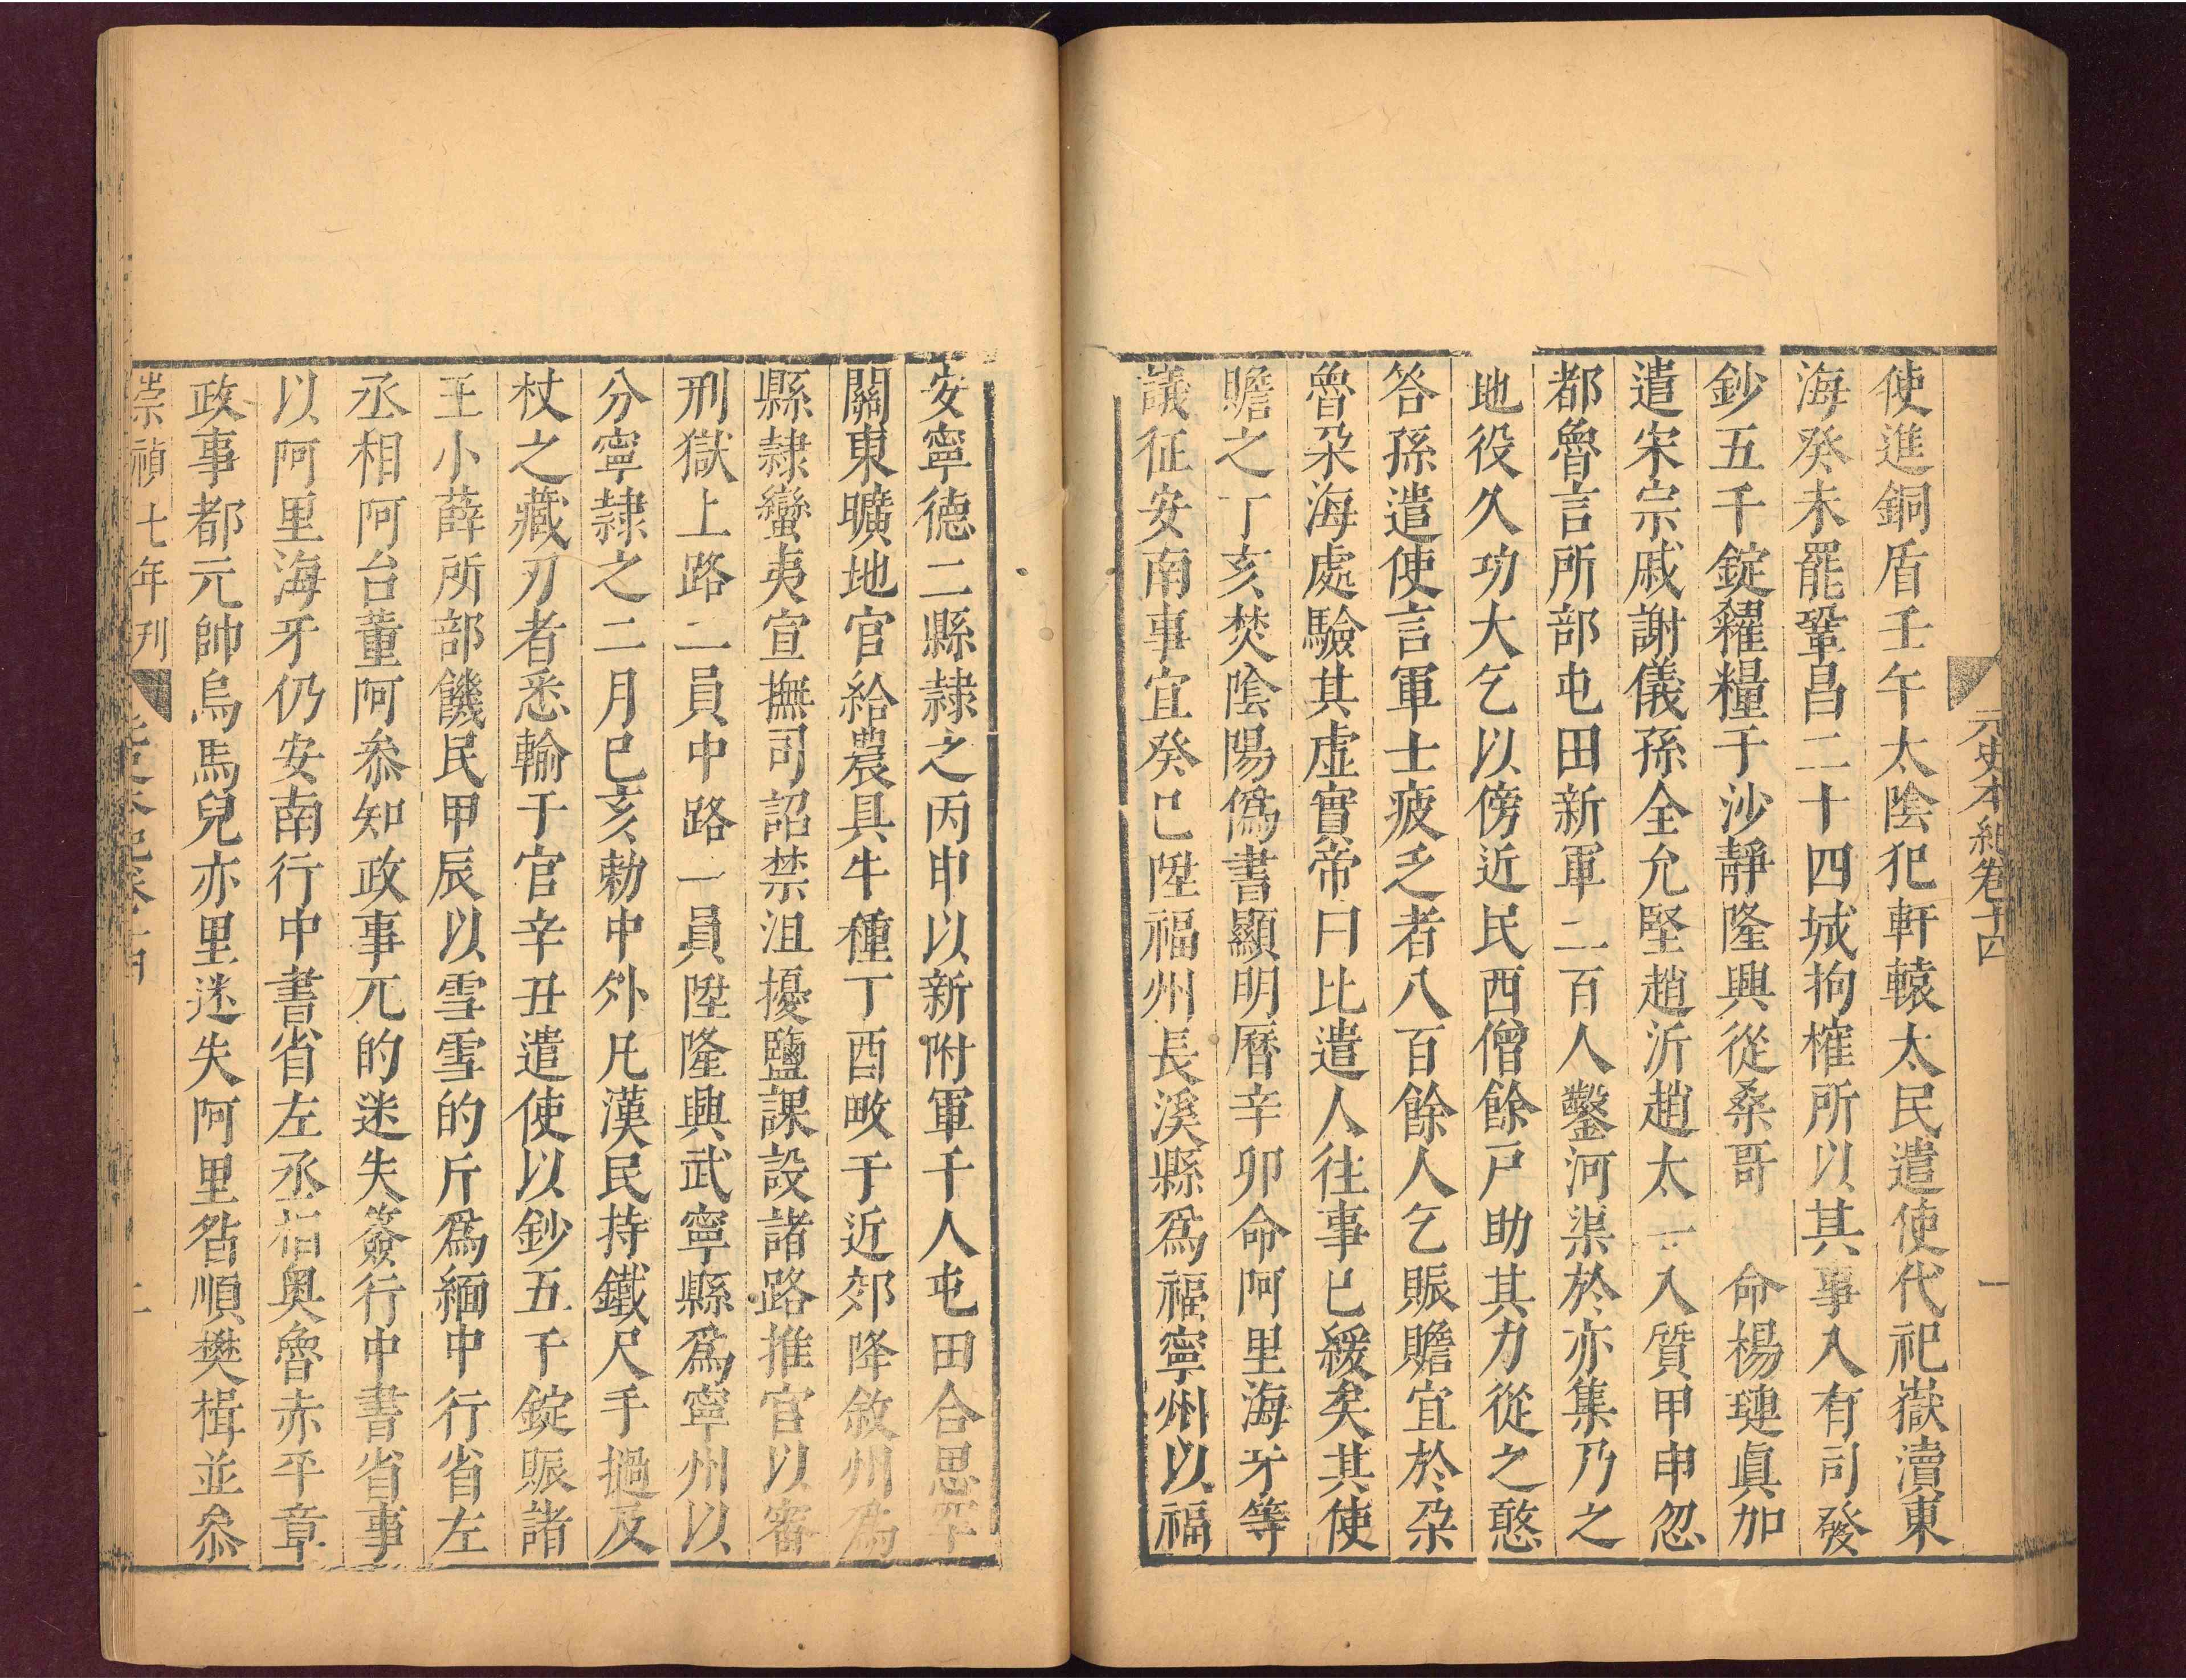 元史本紀卷十四
一
使進銅盾壬午太陰犯軒轅太民遣使代祀嶽瀆東
海癸未罷鞏昌二十四城拘榷所以其事入有司發
鈔五千錠糴糧于沙靜隆興從桑哥 命楊璉眞加
遣宋宗戚謝儀孫全允堅趙沂趙太一入質甲申忽
都魯言所部屯田新軍二百人鑿河渠於亦集乃之
地役久功大乞以傍近民西僧餘戸助其力從之憨
答孫遣使言軍士疲乏者八百餘人乞賑贍宜於朶
魯朶海處驗其虛實帝曰比遣人往事已緩矣其使
贍之丁亥焚陰陽僞書顯明曆辛卯命阿里海牙等
議征安南事宜癸巳陞福州長溪縣爲福寧州以福
安寧德二縣隷之丙申以新附軍千人屯田合思罕
關東曠地官給農具牛種丁酉畋于近郊降敘州爲
縣隷蠻夷宣撫司詔禁沮擾鹽課設諸路推官以審
刑獄上路二員中路一員陞隆興武寧縣爲寧州以
分寧隷之二月巳亥勑中外凡漢民持鐵尺手撾及
杖之藏刃者悉輸于官辛丑遣使以鈔五千錠賑諸
王小薛所部饑民甲辰以雪雪的斤爲緬中行省左
丞相阿台董阿叅知政事兀的迷失簽行中書省事
以阿里海牙仍安南行中書省左丞相奥魯赤平章
政事都元帥烏馬兒亦里迷失阿里昝順樊楫並叅
崇禎七年刊
二